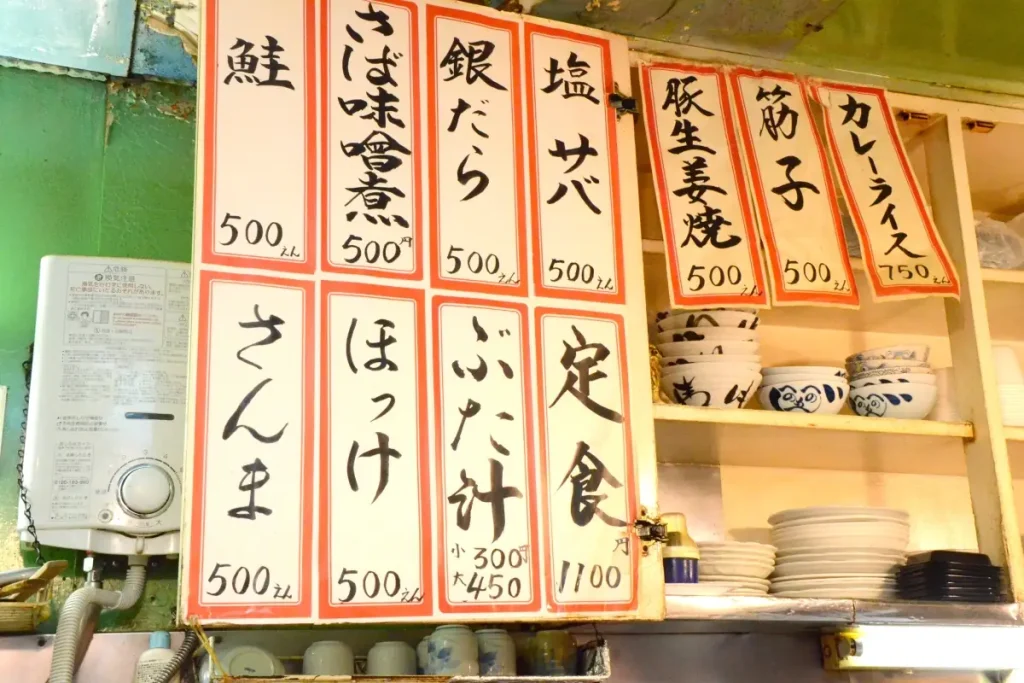 鮭
500えん
さば味噌煮
500円
銀だら
500えん
塩サバ
500えん
豚生姜焼
500えん
筋子
500えん
カレーライス
750えん
さんま
500えん
ほっけ
500えん
ぶた汁
小 300円
大 450
定食
円
1100